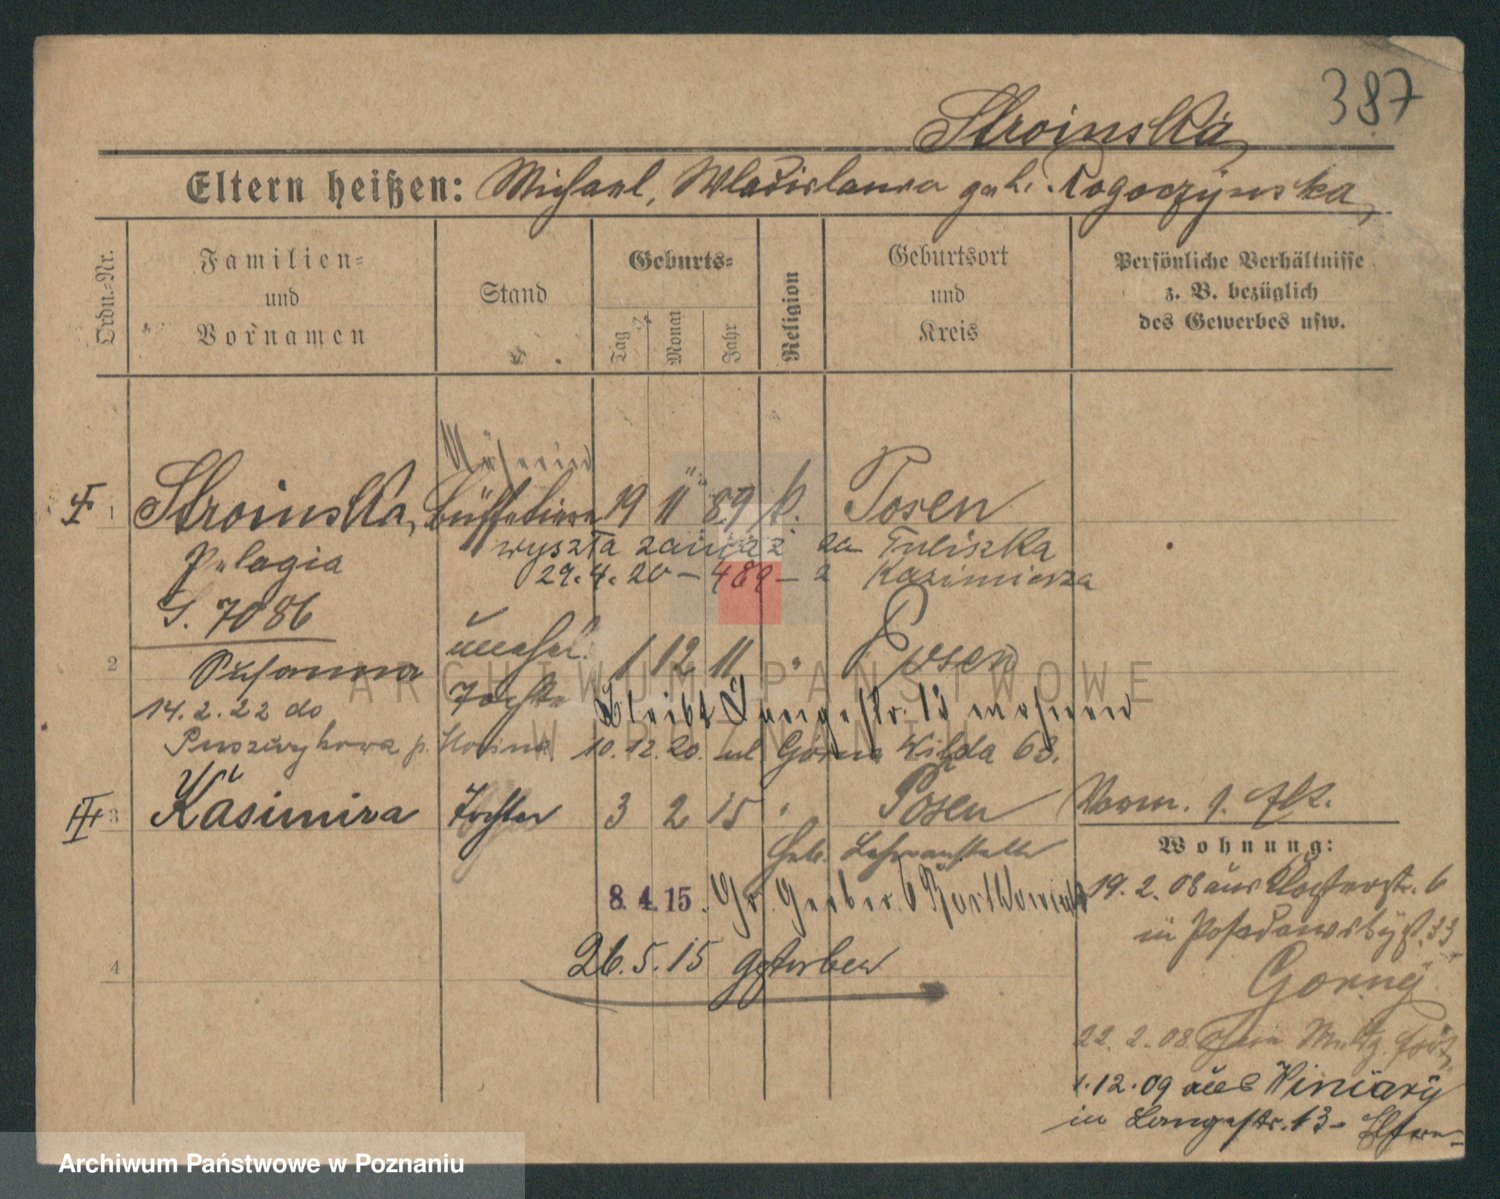 387
Stroinska,
Eltern heißen: Michael, Wladislawa geb. Rogoczynska,
Ordn.-Nr.
Familien-
und
Vornamen
Stand
Geburts-
Tag
Monat
Jahr
Religion
Geburtsort
und
Kreis
Persönliche Verhältnisse
z. B. bezüglich
des Gewerbes usw.
Näherin
I 1 Stroinska, Büffetiere 19 11 89 k. Posen
Pelagia
wyszła zamąż za Tuliszka
29.4.20 - 489 - 2 Kazimierza
S. 7086
unehel.
2 Susanna 1 12 11 " Posen
Tochter
14.2.22 do
Bleibt Langestr. 13 wohnen
Puszczykowa p. 10.12.20. ul Górna Wilda 63.
III 3 Kasimira Tochter 3 2 15 " Posen
Vorm.
Wohnung:
Heb. Lehranstalt
8.4.15. Gr. Gerber. 6
19.2.08 aus Klosterstr. 6
in Posadowskyst. 33
26.5.15 gestorben
4
Gorny
22.2.08
1.12.09 aus Winiary
in Langestr. 13 - Eltern
ARCHIWUM PAŃSTWOWE
W POZNANIU
Archiwum Państwowe w Poznaniu